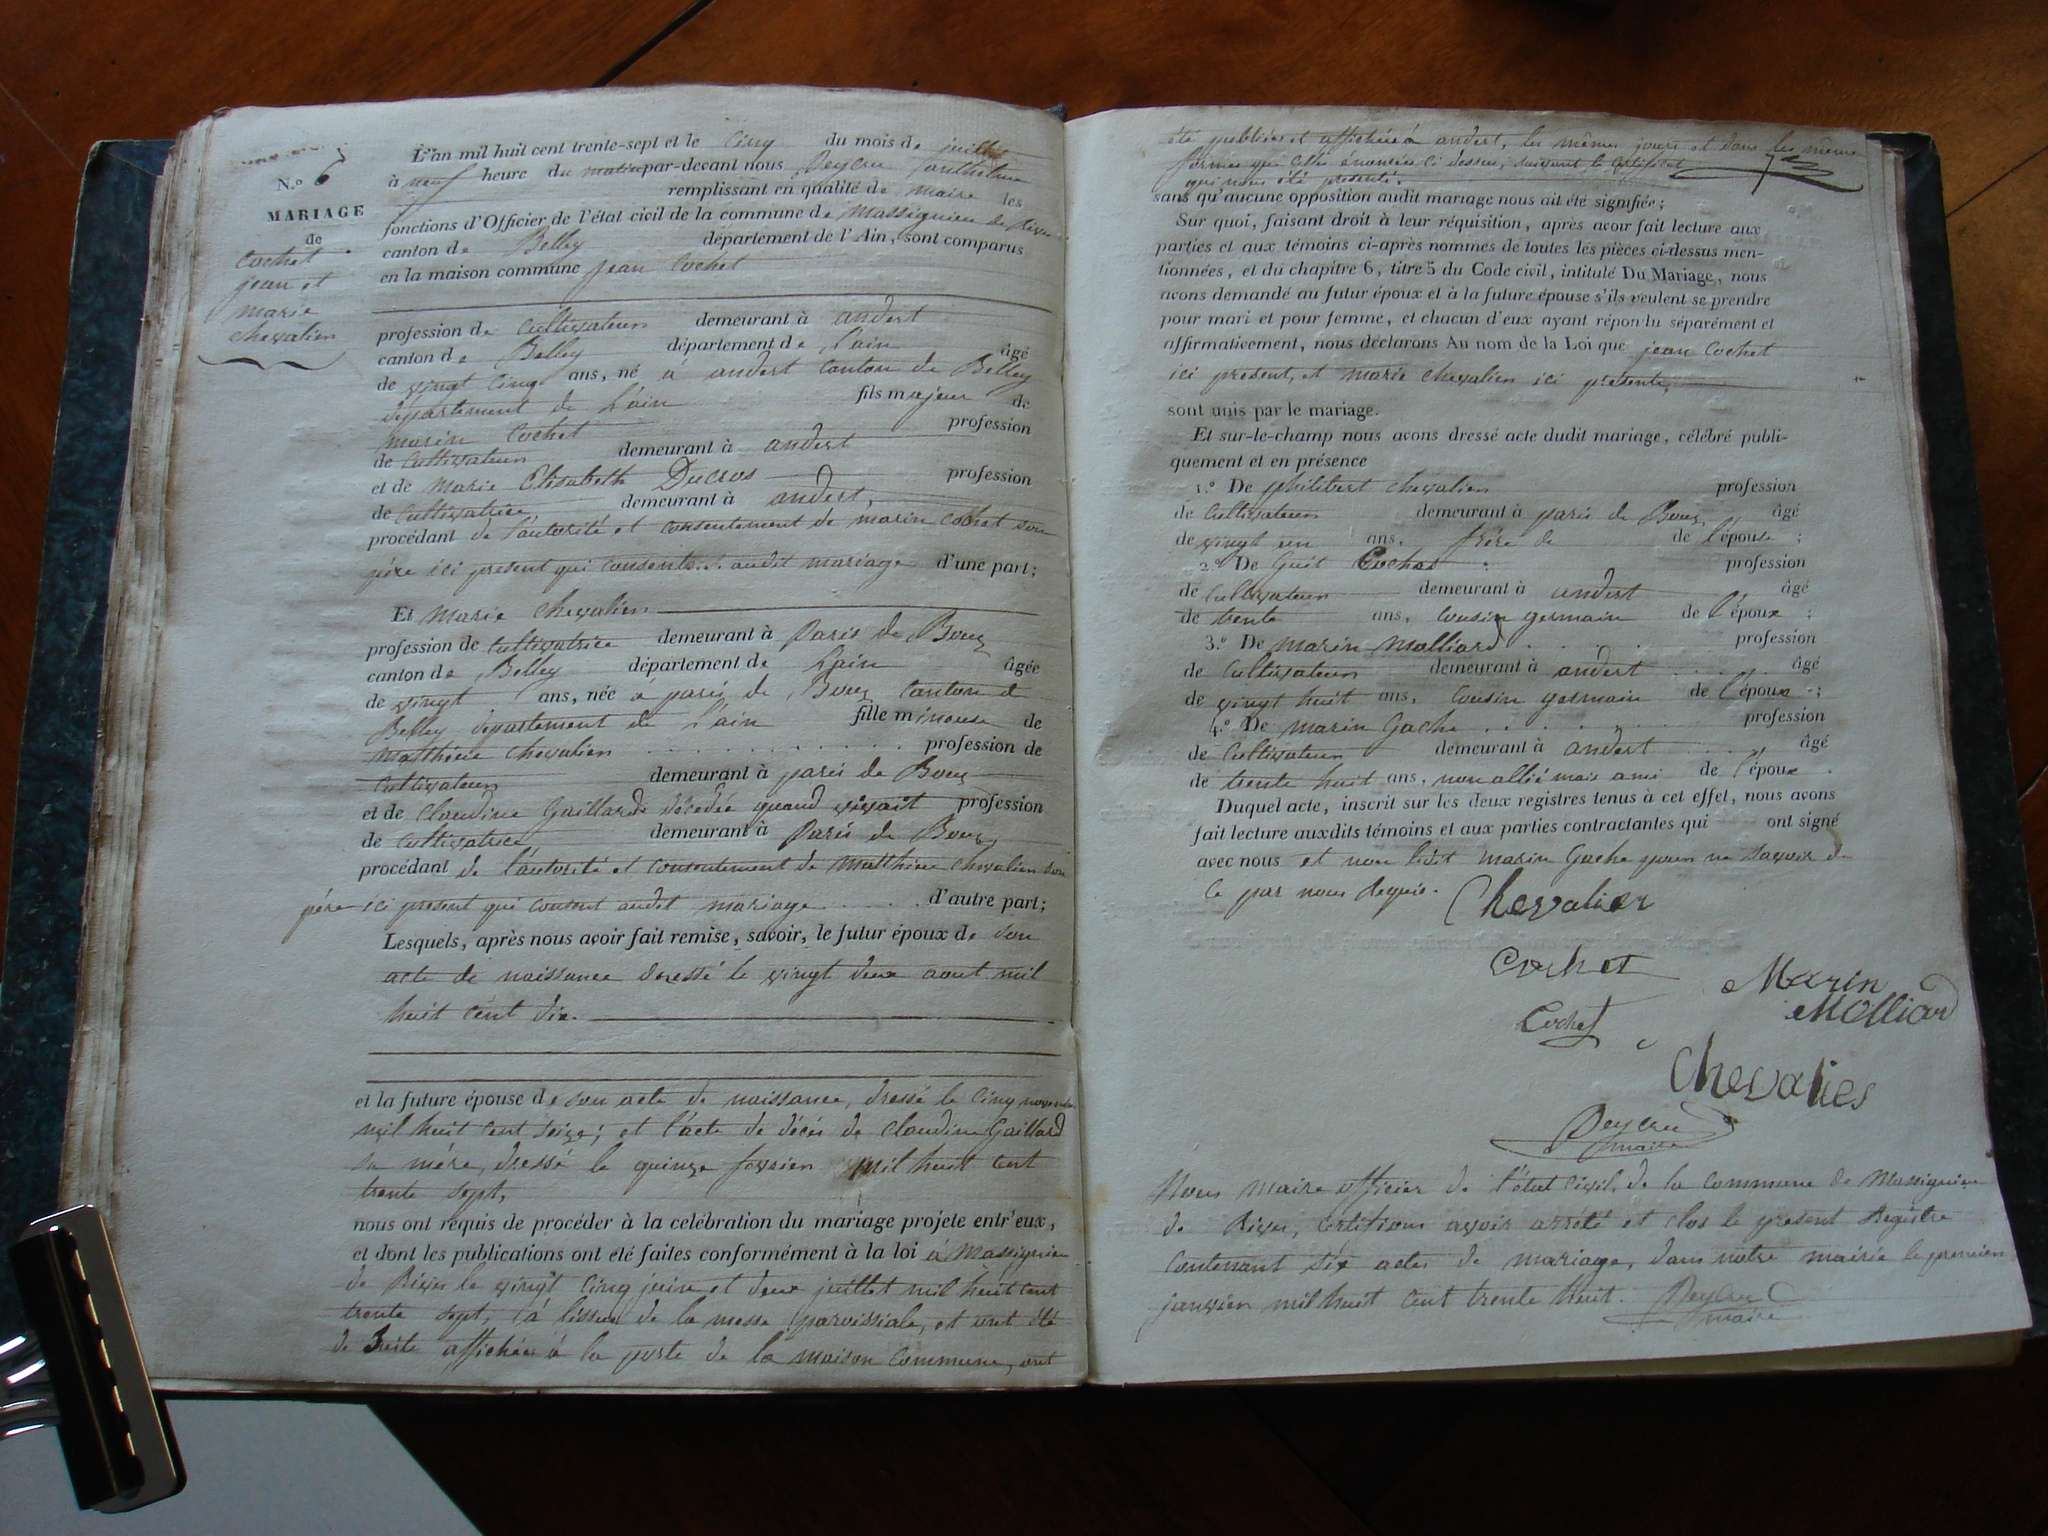 N.º 6
MARIAGE
de
Cochet
jean et
marie
chevalier
L'an mil huit cent trente-sept et le cinq du mois de juillet
à neuf heure du matin par-devant nous Peycru anthelme
remplissant en qualité de maire les
fonctions d'Officier de l'état civil de la commune de Massignieu de Rives
canton de Belley département de l'Ain, sont comparus
en la maison commune jean Cochet
profession de cultivateur demeurant à andert
canton de Belley département de L'ain âgé
de vingt cinq ans, né a andert canton de Belley
département de L'ain fils majeur de
marin Cochet profession
de cultivateur demeurant à andert
et de Marie Elisabeth Ducros profession
de cultivatrice demeurant à andert,
procédant de l'autorité et consentement de marin cochet son
père ici present qui consent audit mariage d'une part;
Et Marie chevalier
profession de cultivatrice demeurant à Paris de Bouz
canton de Belley département de L'ain âgée
de vingt ans, née a paris de Bouz canton de
Belley département de L'ain fille mineuse de
Matthieu chevalier profession de
cultivateur demeurant à paris de Bouz
et de Claudine Gaillard décédée quand vivait profession
de cultivatrice demeurant à Paris de Bouz,
procédant de l'autorité et consentement de Matthieu chevalier son
père ici present qui consent audit mariage d'autre part;
Lesquels, après nous avoir fait remise, savoir, le futur époux de son
acte de naissance dressé le vingt deux aout mil
huit cent dix.
et la future épouse de son acte de naissance, dressé le cinq novembre
mil huit cent seize; et l'acte de décès de claudine Gaillard
sa mère, dressé le quinze fevrier mil huit cent
trente sept,
nous ont requis de procéder à la celébration du mariage projete entr'eux,
et dont les publications ont été faites conformément à la loi à Massignieu
de Rives le vingt cinq juin et deux juillet mil huit cent
trente sept, à l'issue de la messe paroissiale, et ont été
de suite affichées à la porte de la maison commune, ont
été publiées et affichées à andert, les mêmes jours et dans les mêmes
formes que celle énoncée ci dessus, suivant le certificat
qui nous été presenté.
sans qu'aucune opposition audit mariage nous ait été signifiée;
Sur quoi, faisant droit à leur réquisition, après avoir fait lecture aux
parties et aux témoins ci-après nommes de toutes les pièces ci-dessus men-
tionnées, et du chapitre 6, titre 5 du Code civil, intitulé Du Mariage, nous
avons demandé au futur époux et à la future épouse s'ils veulent se prendre
pour mari et pour femme, et chacun d'eux ayant répondu séparément et
affirmativement, nous déclarons Au nom de la Loi que jean Cochet
ici present, et marie chevalier ici présente,
sont unis par le mariage.
Et sur-le-champ nous avons dressé acte dudit mariage, célébré publi-
quement et en présence
1.º De philibert chevalier profession
de cultivateur demeurant à paris de Bouz, âgé
de vingt un ans, frère de de l'épouse;
2.º De Cochet profession
de cultivateur demeurant à andert âgé
de trente ans, cousin germain de l'époux;
3.º De marin Molliard profession
de cultivateur demeurant à andert âgé
de vingt huit ans, cousin germain de l'époux;
4.º De marin Gache profession
de cultivateur demeurant à andert âgé
de trente huit ans, non allié mais ami de l'époux.
Duquel acte, inscrit sur les deux registres tenus à cet effet, nous avons
fait lecture auxdits témoins et aux parties contractantes qui ont signé
avec nous et non ledit marin Gache pour ne savoir de
ce par nous requis.
Chevalier
Cochet
Marin
Molliard
Cochet
Chevalier
Peycru
maire
Nous maire officier de l'état civil de la commune de Massignieu
de Rives, certifions avoir arreté et clos le present Registre
contenant six actes de mariage, dans notre mairie le premier
janvier mil huit cent trente huit. Peycru
maire